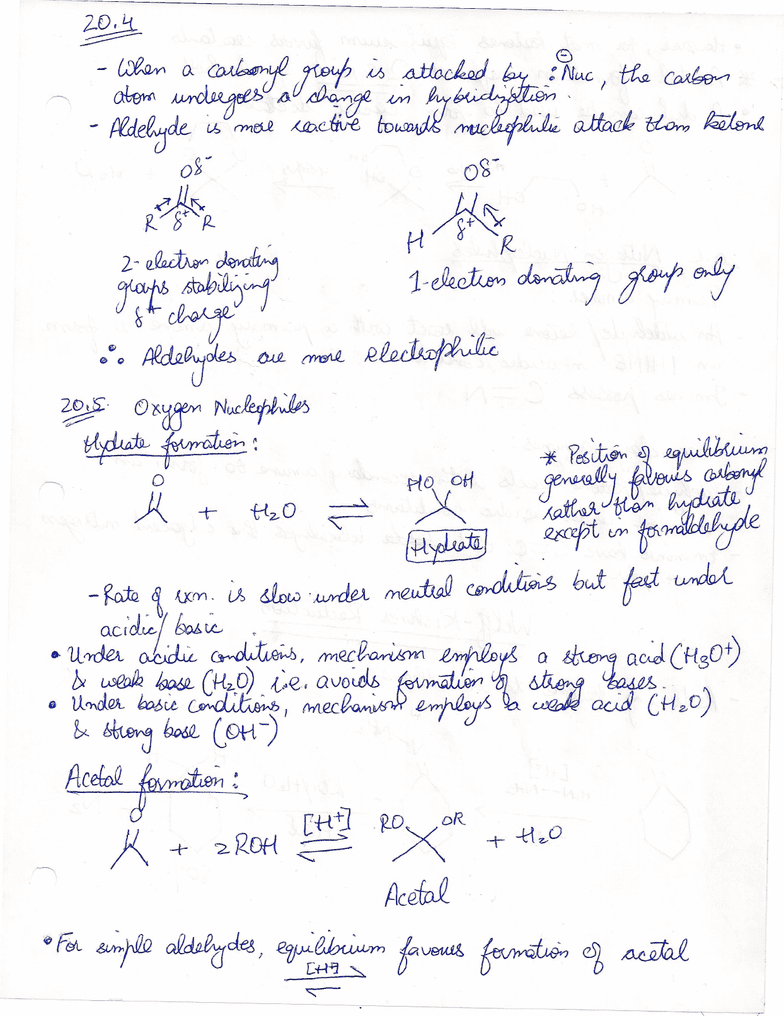 20.4
- When a carbonyl group is attacked by :Nuc⊖, the carbon
atom undergoes a change in hybridization.
- Aldehyde is more reactive towards nucleophilic attack than ketone
Oδ⁻
R δ⁺ R
2-electron donating
groups stabilizing
δ⁺ charge
Oδ⁻
H δ⁺ R
1-electron donating group only
∴ Aldehydes are more electrophilic
20.5. Oxygen Nucleophiles
Hydrate formation:
O + H₂O ⇌ HO OH
Hydrate
* Position of equilibrium
generally favours carbonyl
rather than hydrate
except in formaldehyde
- Rate of rxn. is slow under neutral conditions but fast under
acidic/basic
• Under acidic conditions, mechanism employs a strong acid (H₃O⁺)
& weak base (H₂O) i.e. avoids formation of strong bases.
• Under basic conditions, mechanism employs a weak acid (H₂O)
& strong base (OH⁻)
Acetal formation:
O + 2ROH [H⁺] ⇌ RO OR + H₂O
Acetal
• For simple aldehydes, equilibrium favours formation of acetal
[H⁺] ⇌